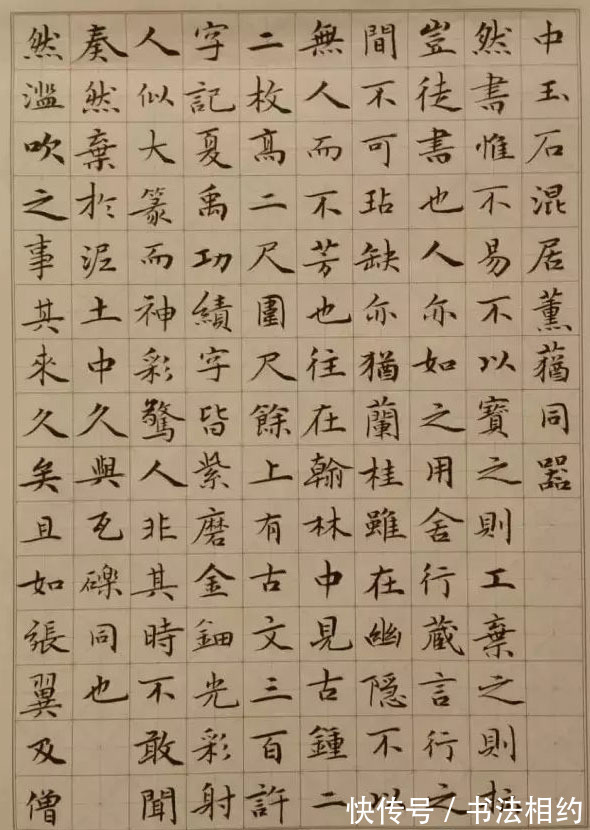 中玉石混居薰蕕同器
然書惟不易不以寶之則工棄之則拙
豈徒書也人亦如之用舍行蔵言行之
間不可玷缺亦猶蘭桂雖在幽隱不以
無人而不芳也往在翰林中見古鍾二
二枚高二尺圍尺餘上有古文三百許
字記夏禹功績字皆紫磨金鈿光彩射
人似大篆而神彩驚人非其時不敢聞
奏然棄於泥土中久與瓦礫同也
然滥吹之事其來久矣且如張翼及僧
快传号 / 书法相约